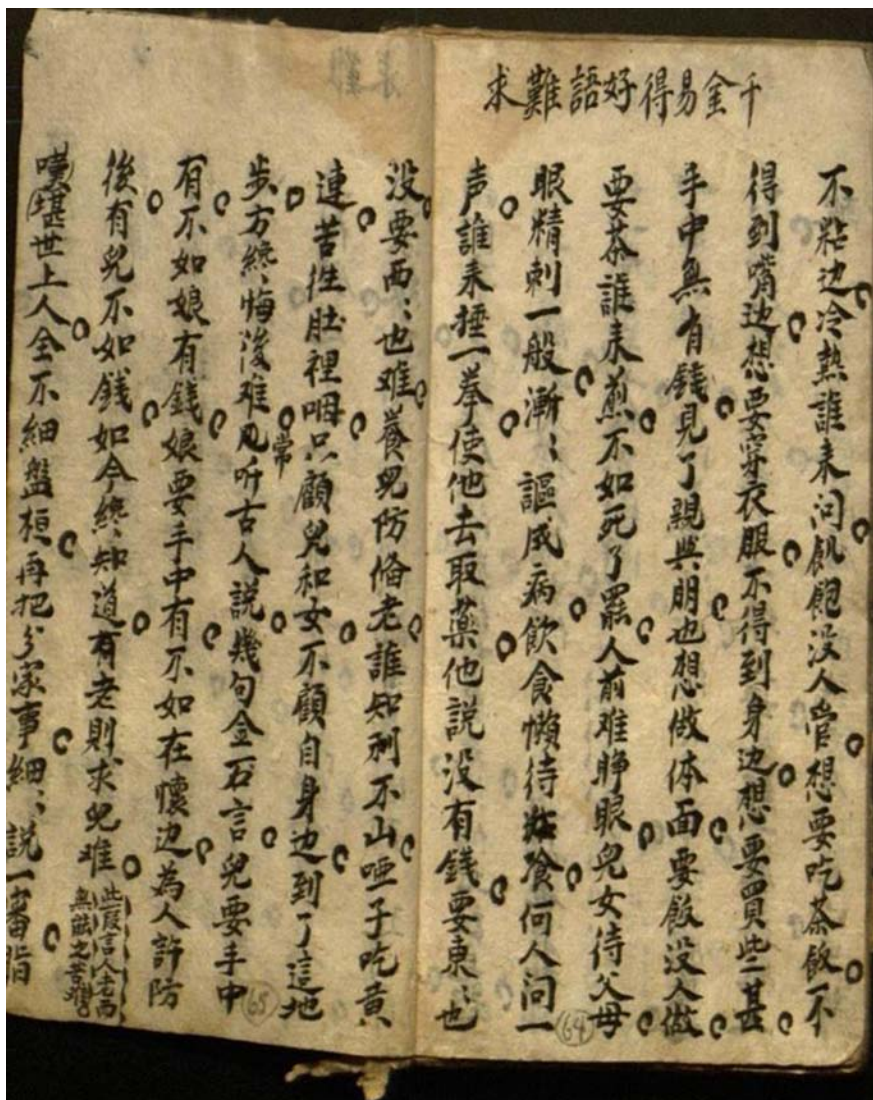 千金易得好語難求
不粘边冷熱誰来问飢飽没人管想要吃茶飯不
得到嘴边想要穿衣服不得到身边想要買些甚
手中無有錢見了親與朋也想做体面要飯没人做
要茶誰来煎不如死了罷人前难睁眼兒女待父母
眼精刺一般漸〻謳成病飲食懒待飡何人问一
声誰来捶一拳使他去取藥他説没有錢要東〻也
没要西〻也难養兒防俻老誰知利不山哑子吃黄
連苦徃肚裡咽只顧兒和女不顧自身边到了這地
步方纔〻悔後难凡常听古人說幾句金石言兒要手中
有不如娘有錢娘要手中有不如在懷边為人許防
後有兒不如錢如今纔〻知道有老則求兒难
此段言人老而
無
嘆世上人全不細盤桓再把分家事細〻説一番
64
65